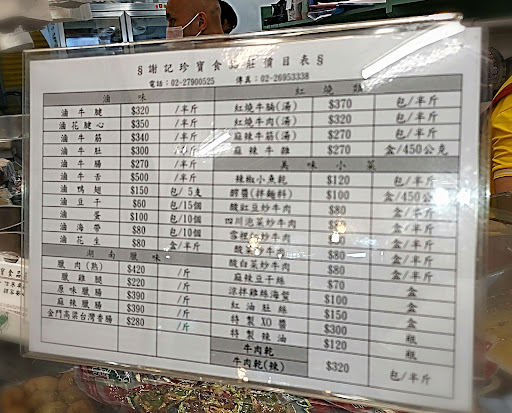 §謝記珍寶食品莊價目表§
電話：02-27900525 傳真：02-26953338
滷味
滷牛腱 $320 /半斤
滷花腱心 $350 /半斤
滷牛筋 $340 /半斤
滷牛肚 $300 /半斤
滷牛腸 $270 /半斤
滷牛舌 $500 /半斤
滷鴨翅 $150 包/5支
滷豆干 $60 包/15個
滷蛋 $100 包/10個
滷海帶 $80 包/10個
滷花生 $80 盒/半斤
湖南臘味
臘肉(熟) $420 /斤
臘雞腿 $220 /斤
原味臘腸 $390 /斤
麻辣臘腸 $390 /斤
金門高粱台灣香腸 $280 /斤
紅燒類
紅燒牛腩(湯) $370 包/半斤
紅燒牛肉(湯) $320 包/半斤
麻辣牛筋(湯) $270 包/半斤
麻辣牛雜 $270 盒/450公克
美味小菜
辣椒小魚乾 $120 包/半斤
醡醬(拌麵料) $100 盒/450公
酸豇豆炒牛肉 $80 盒/半斤
四川泡菜炒牛肉 $80 包/半斤
雪裡紅炒牛肉 $80 包/半斤
酸菜炒牛肉 $80 包/半斤
酸白菜炒牛肉 $80 包/半斤
麻辣豆干絲 $70 盒
涼拌雞絲海蜇 $100 盒
紅油肚絲 $150 盒
特製XO醬 $300 瓶
特製辣油 $120 瓶
牛肉乾
牛肉乾(辣) $320 包/半斤